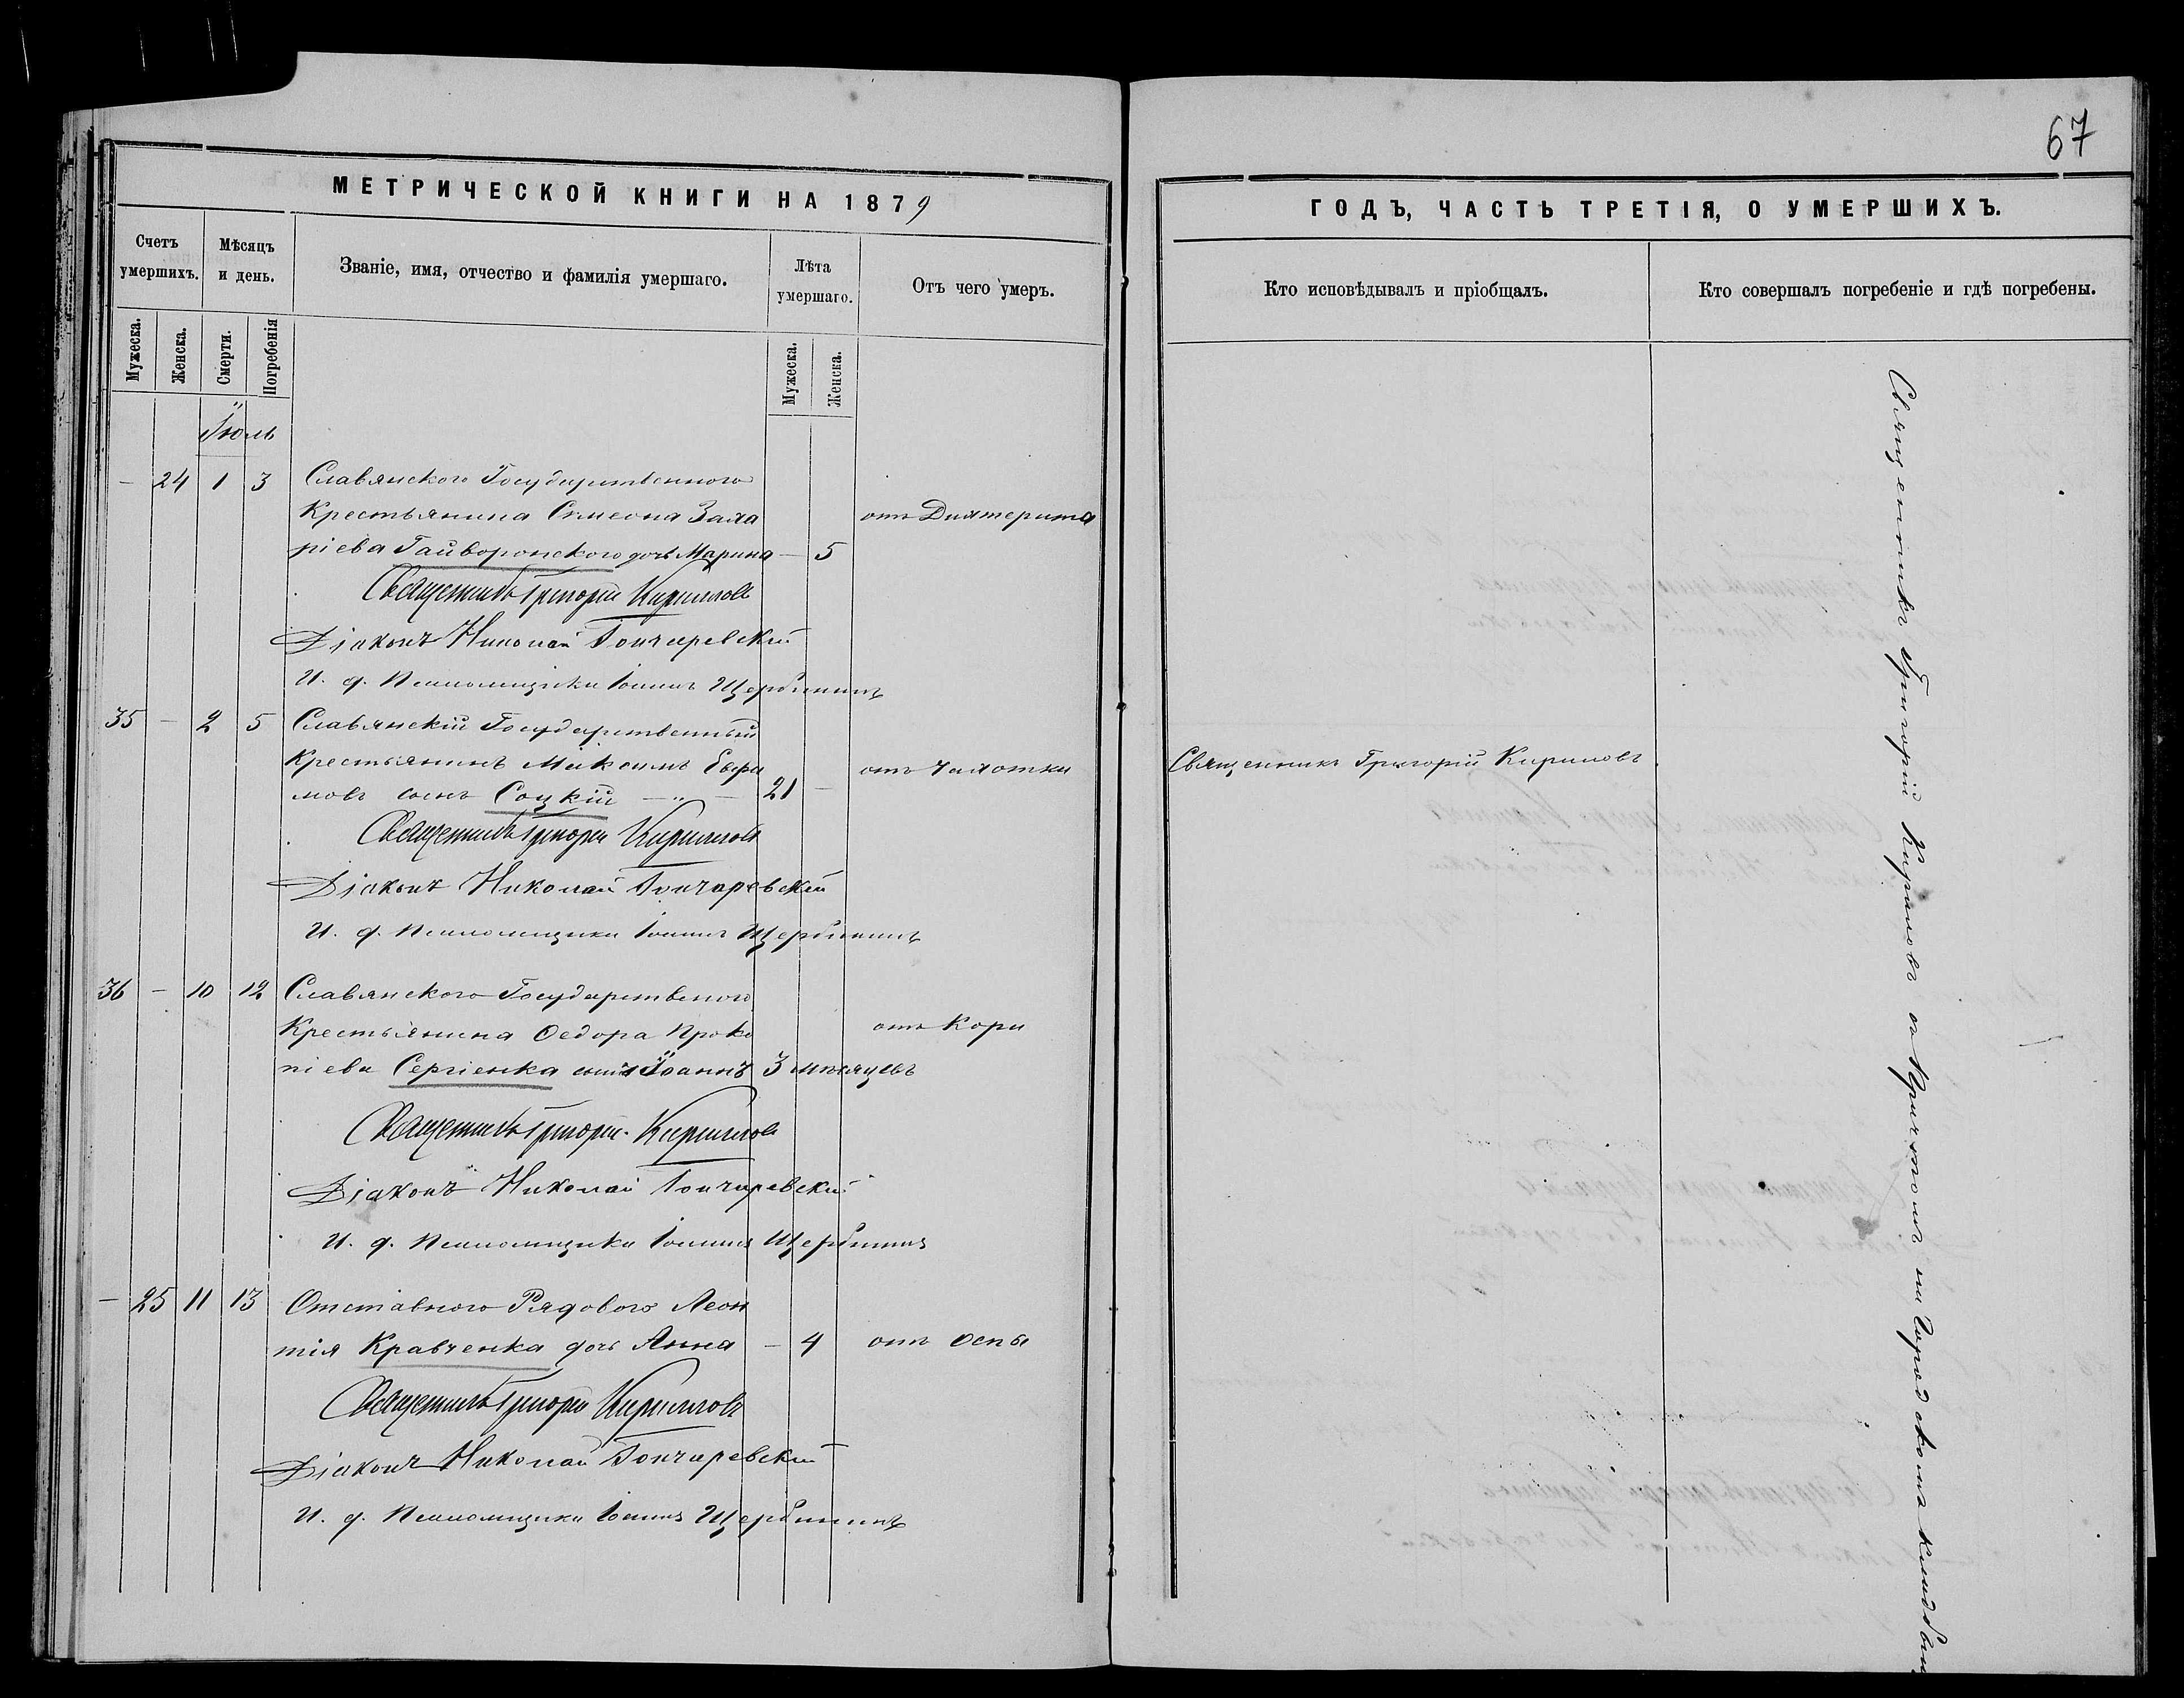 67
МЕТРИЧЕСКОЙ КНИГИ НА 1879
ГОДЪ, ЧАСТЬ ТРЕТІЯ, О УМЕРШИХЪ.
Счетъ умершихъ.
Мѣсяцъ и день.
Званіе, имя, отчество и фамилія умершаго.
Лѣта умершаго.
Отъ чего умеръ.
Кто исповѣдывалъ и пріобщалъ.
Кто совершалъ погребеніе и гдѣ погребены.
Мужеска.
Женска.
Смерти.
Погребенія
Мужеска.
Женска.
Іюль
— 24 1 3 Славянского Государственного
Крестьянина Симеона Заха отъ Дихтерита
ріева Гайворонского дочь Марина — 5
Священникъ Григорій Кириловъ
Діаконъ Николай Гончаревскій
И. д. Псаломщика Іоаннъ Щербининъ
35 — 2 5 Славянскій Государственный
Крестьянинъ Максимъ Ефи отъ Чахотки Священникъ Григорій Кириловъ
мовъ сынъ Соцкій — " — 21 —
Священникъ Григорій Кириловъ
Діаконъ Николай Гончаревскій
И. д. Псаломщика Іоаннъ Щербининъ
36 — 10 12 Славянского Государственого
Крестьянина Ѳедора Проко отъ Кори
піева Сергіенка сынъ Іоаннъ 3 мѣсяцевъ
Священникъ Григорій Кириловъ
Діаконъ Николай Гончаревскій
И. д. Псаломщика Іоаннъ Щербининъ
— 25 11 13 Отставного Рядового Леон
тія Кравченка дочь Анна — 4 отъ Оспы
Священникъ Григорій Кириловъ
Діаконъ Николай Гончаревскій
И. д. Псаломщика Іоаннъ Щербининъ
Священникъ Григорій Кириловъ съ Причтомъ на Городскомъ кладбищ